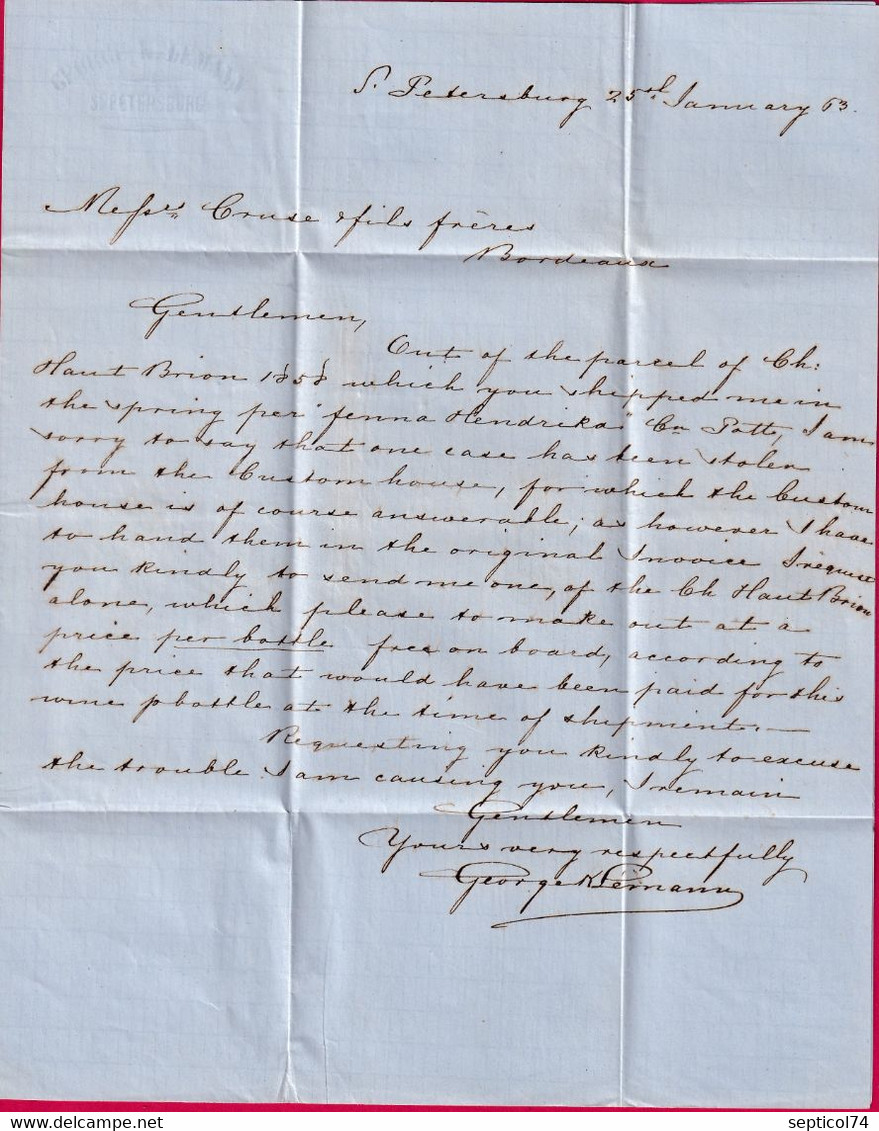 ST PETERSBURG
St. Petersburg 25th January 63.
Messrs Cruse & fils frères
Bordeaux
Gentlemen,
Out of the parcel of Ch:
Haut Brion 1858 which you shipped me in
the spring per "Jenna Hendrika" Cn Pott, I am
sorry to say that one case has been stolen
from the Custom house, for which the Custom
house is of course answerable; as however I have
to hand them in the original Invoice I request
you kindly to send me one, of the Ch Haut Brion
alone, which please to make out at a
price per bottle free on board, according to
the price that would have been paid for this
wine p bottle at the time of shipment. —
Requesting you kindly to excuse
the trouble I am causing you, I remain
Gentlemen
Yours very respectfully
George
delcampe.net
septicol74